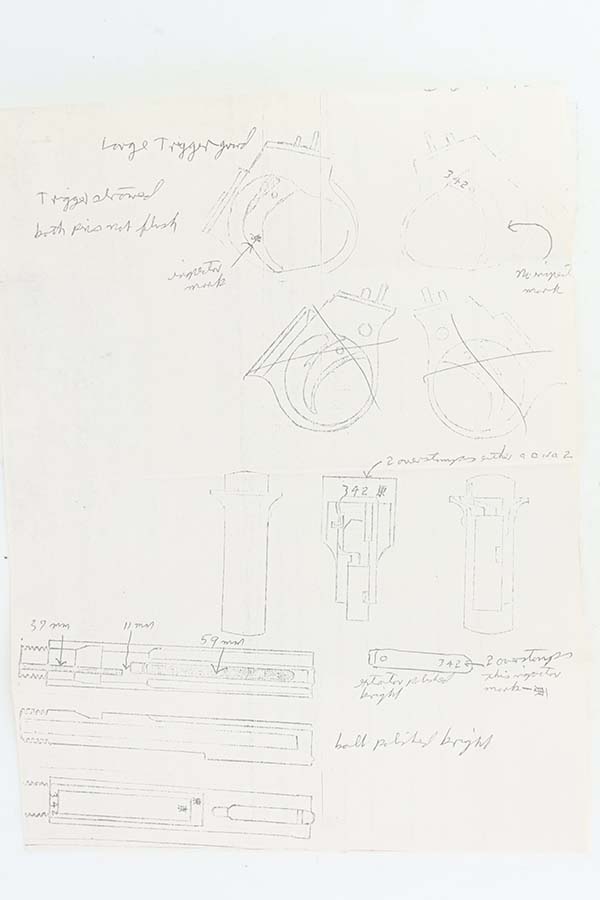 Large Trigger guard
342
Trigger
both pins not flush
inspector
mark
No inspect
mark
2 overstamps either a 0 or a 2
342
37 mm
11 mm
59 mm
342
2 overstamps
this inspector
mark
polished
bright
bolt polished bright
342